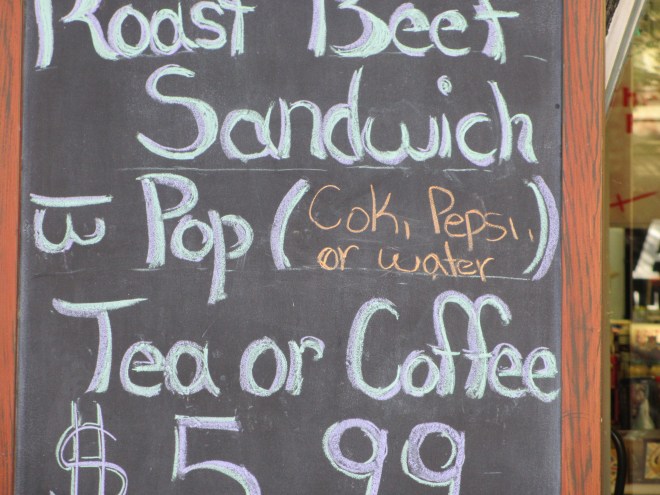 Roast Beef
Sandwich
w Pop (Cok, Pepsi,
or water)
Tea or Coffee
$5.99